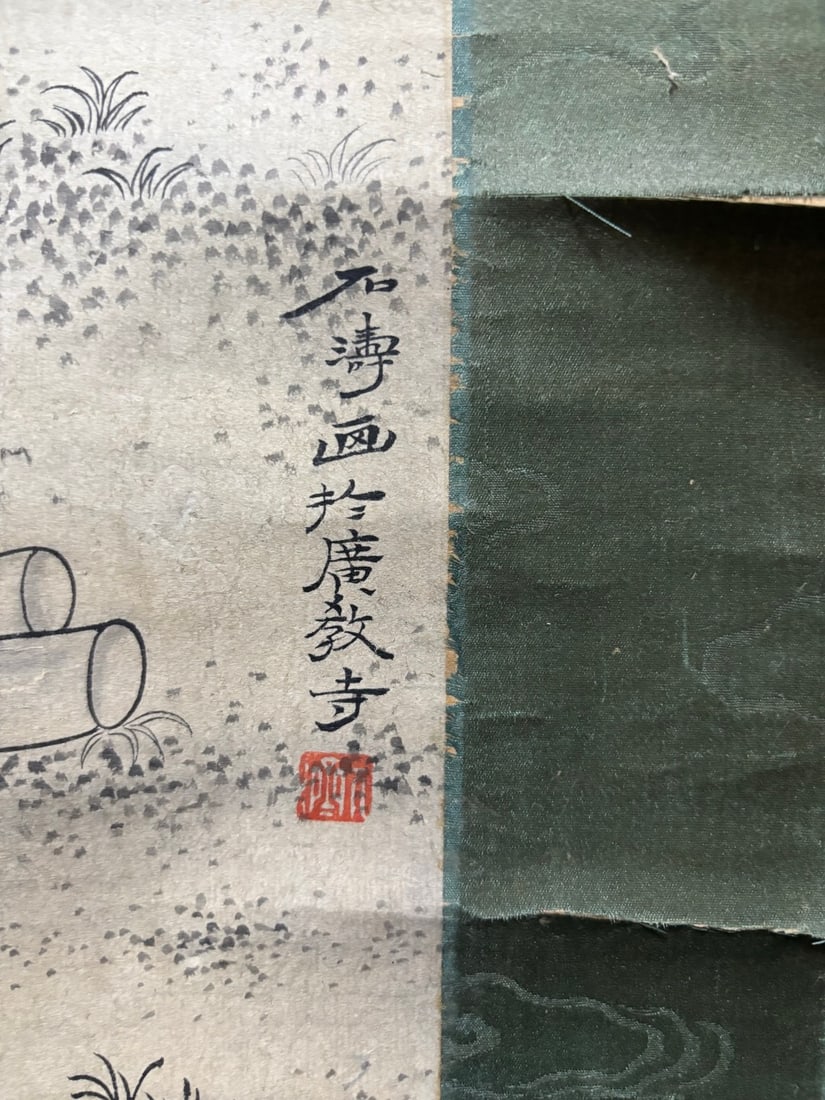 石濤画於廣教寺